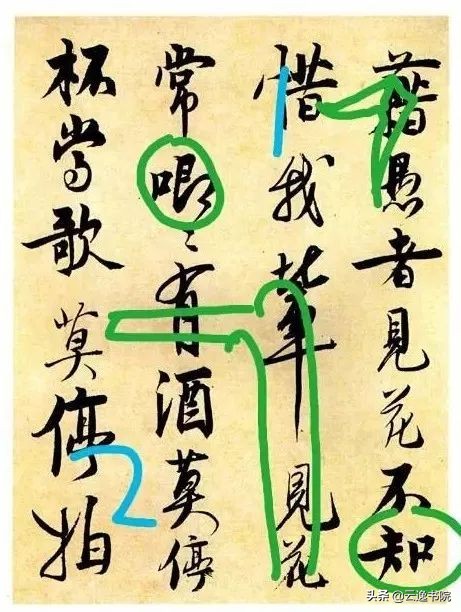 藉愚者見花不知
惜我輩見花
常唧〻有酒莫停
杯當歌莫停拍
头条 @云逸书院